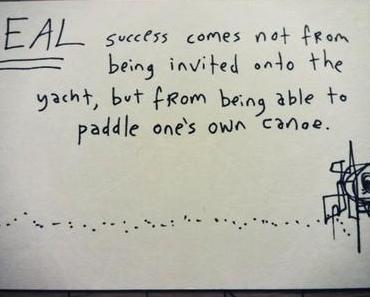 EAL success comes not from
being invited onto the
yacht, but from being able to
paddle one's own canoe.